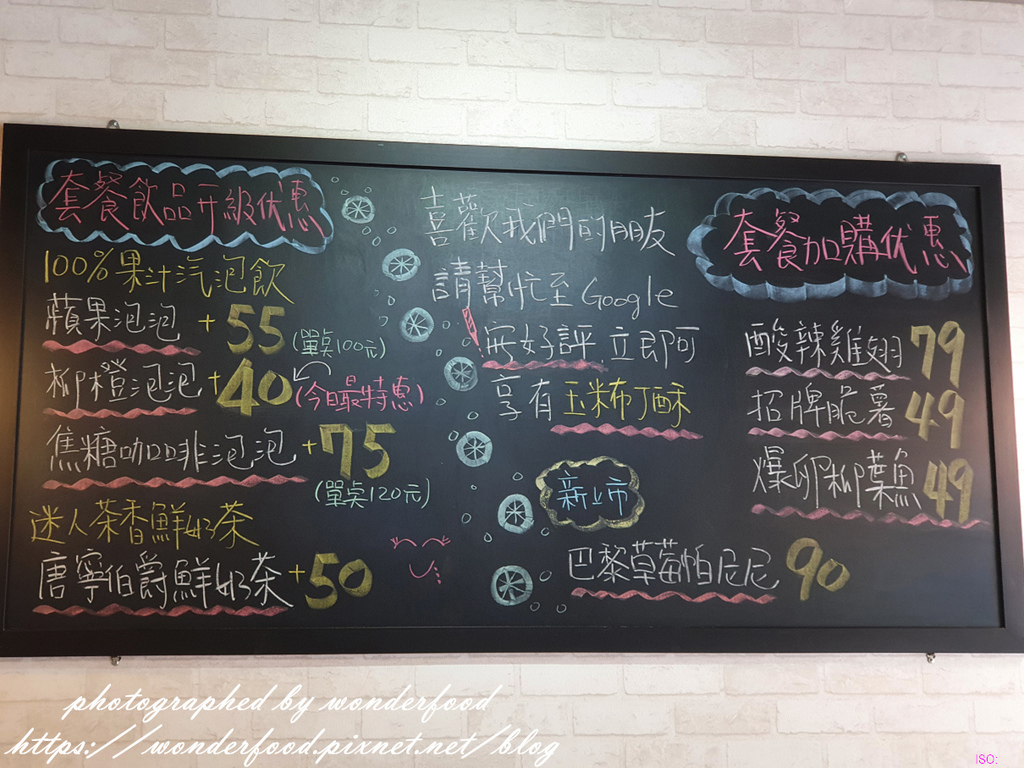 套餐飲品升級优惠
100%果汁汽泡飲
蘋果泡泡 +55
(單点100元)
柳橙泡泡 +40 (今日最特惠)
焦糖咖啡泡泡 +75
(單点120元)
迷人茶香鮮奶茶
唐寧伯爵鮮奶茶 +50
喜歡我們的朋友
請幫忙至 Google
好評 立即可
享有玉米布丁酥
新上市
巴黎草莓帕尼尼 90
套餐加購优惠
酸辣雞翅 79
招牌脆薯 49
爆卵柳葉魚 49
photographed by wonderfood
https://wonderfood.pixnet.net/blog
ISO: